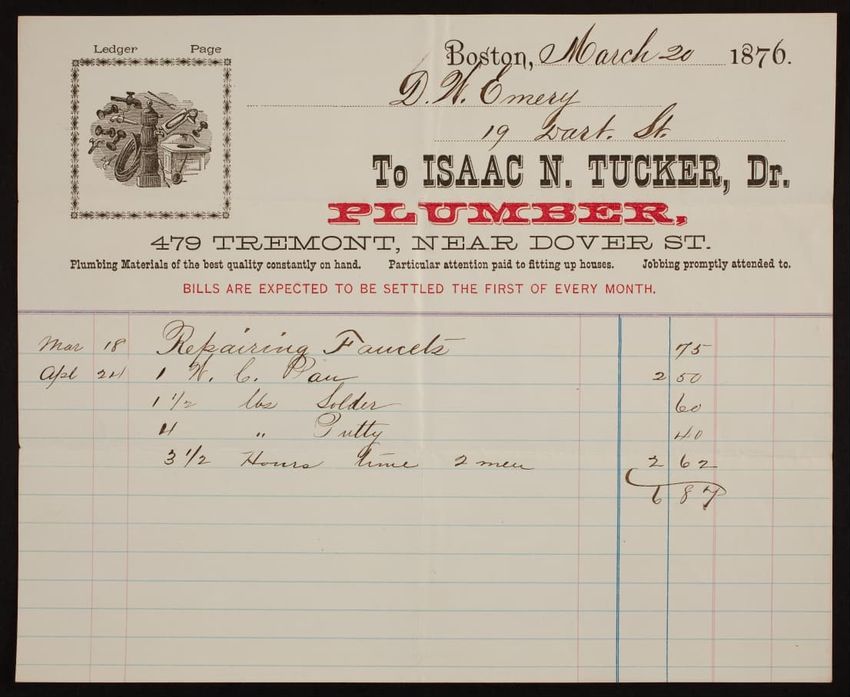 Ledger Page
Boston, March 20 1876.
D. W. Emery
19 Dart. St.
To ISAAC N. TUCKER, Dr.
PLUMBER,
479 TREMONT, NEAR DOVER ST.
Plumbing Materials of the best quality constantly on hand. Particular attention paid to fitting up houses. Jobbing promptly attended to.
BILLS ARE EXPECTED TO BE SETTLED THE FIRST OF EVERY MONTH.
Mar 18 Repairing Faucets 75
Apl 24 1 W. C. Pan 2 50
1 1/2 lbs Solder 60
4 " Putty 40
3 1/2 Hours time 2 men 2 62
6 87